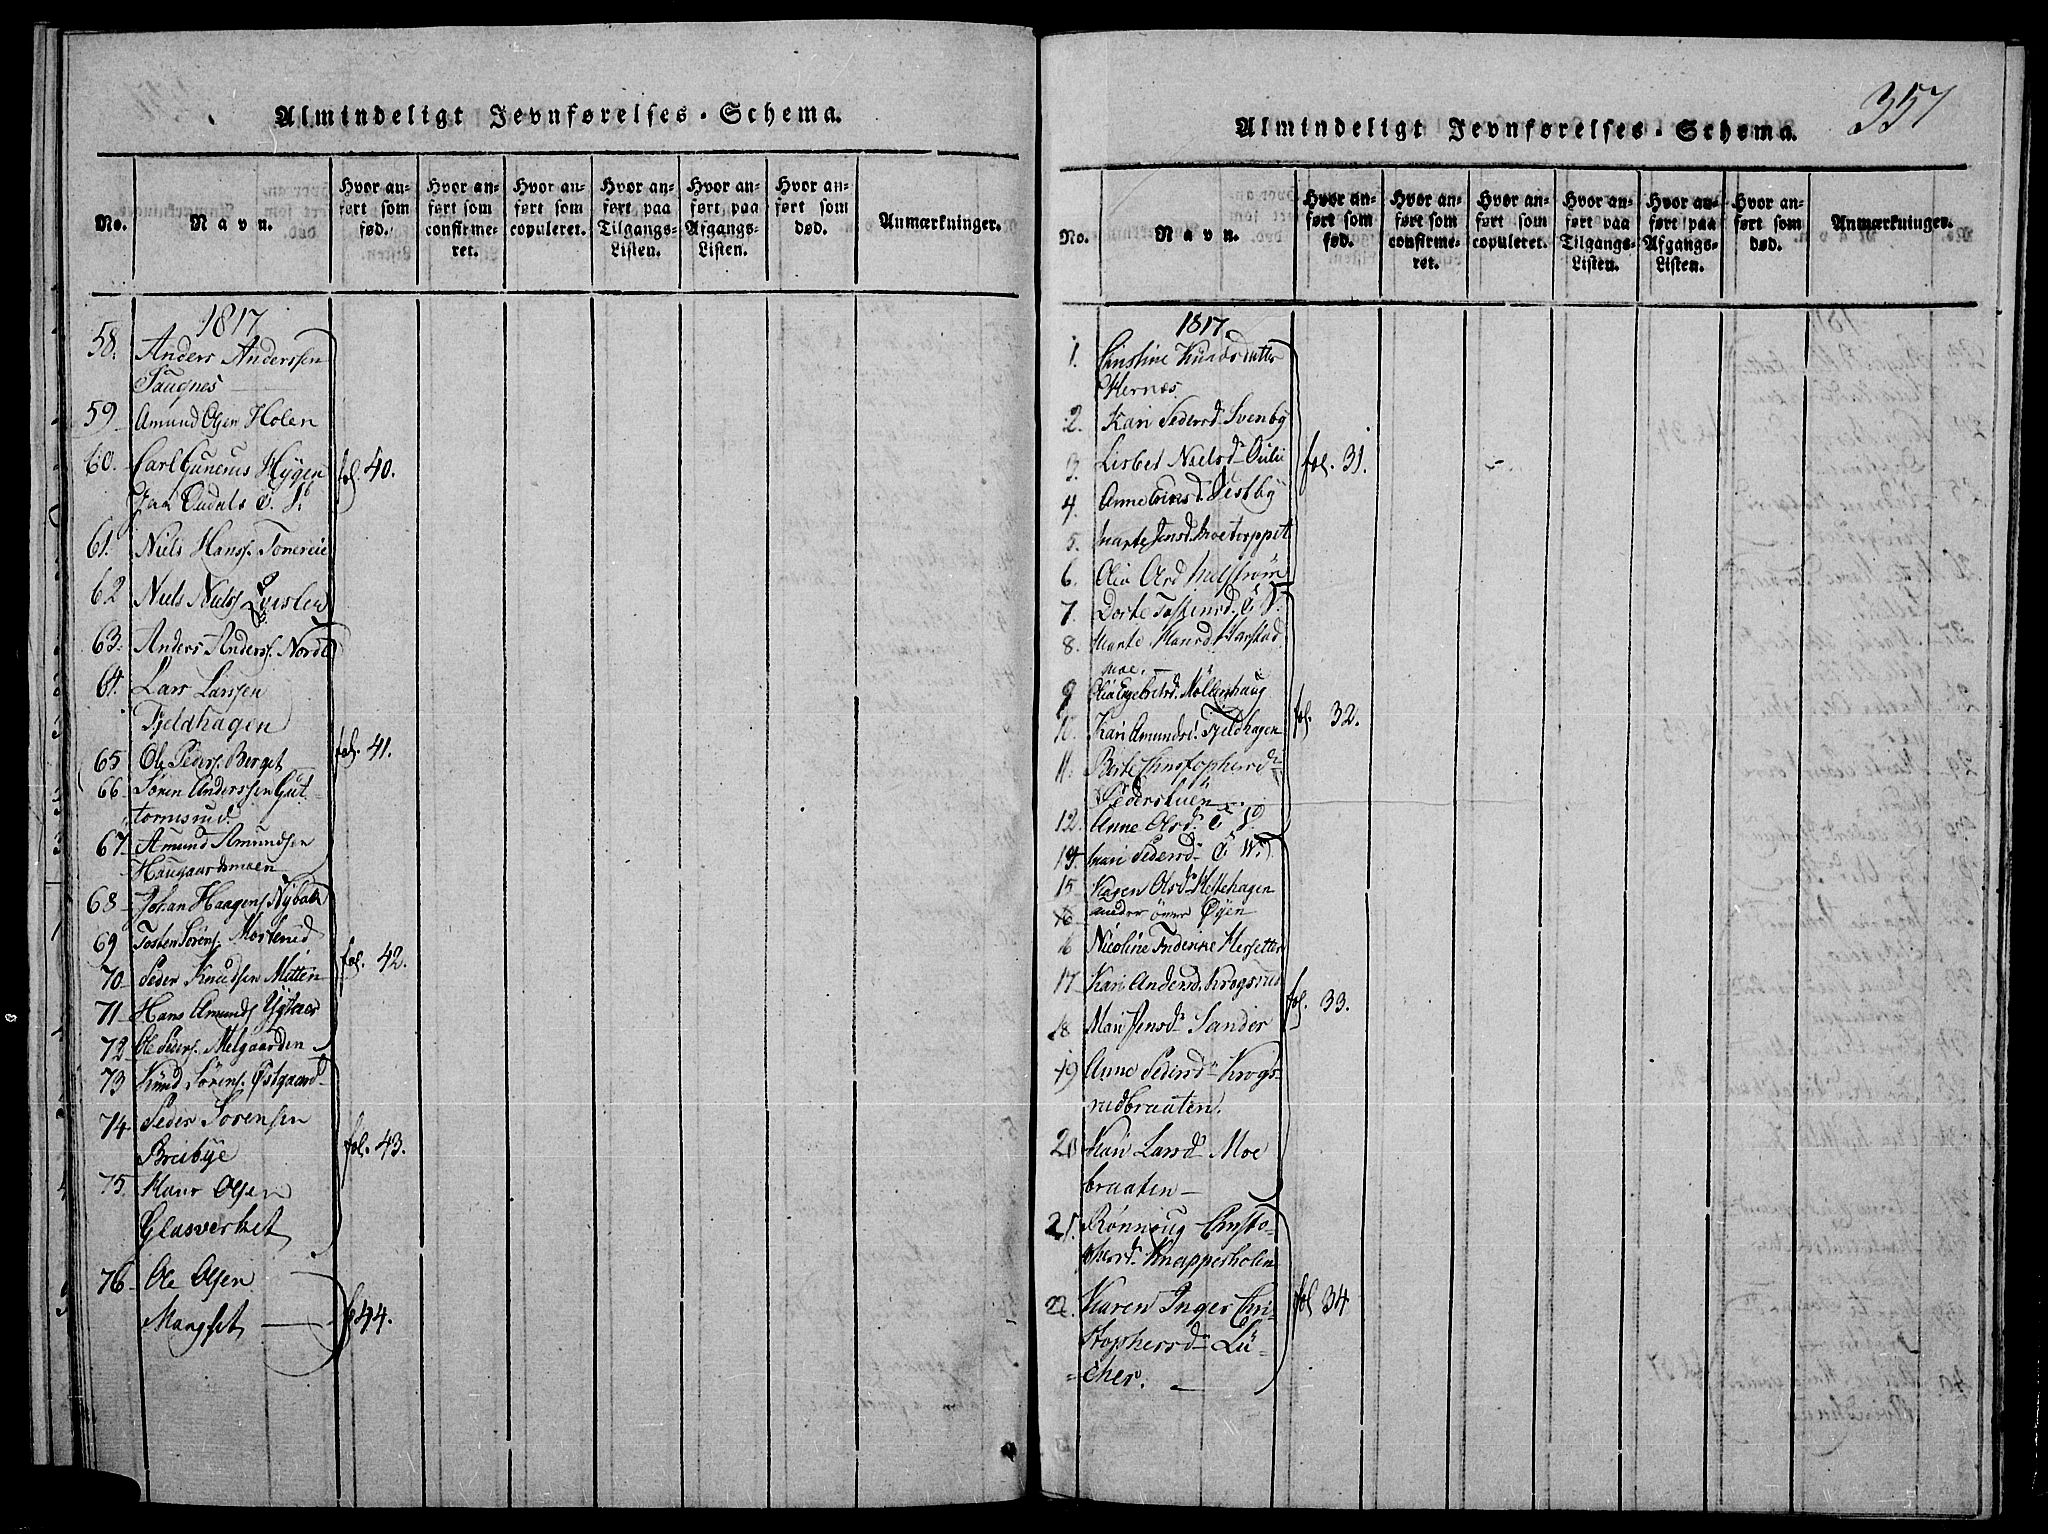 Almindeligt Jevnførelses-Schema.
No.
Navn.
Hvor anført som fød.
Hvor anført som confirmeret.
Hvor anført som copuleret.
Hvor anført paa Tilgangs-Listen.
Hvor anført paa Afgangs-Listen.
Hvor anført som død.
Anmærkninger.
1817
58. Anders Anderssen
Saugnes
59 Amund Olsen Holen
60. Carl Gunerus Hygen
fol. 40.
61. Niels Hanss. Tonereie
62 Niels Nielss
63. Anders Anderss. Nordb
64. Lars Larssen
Fjeldhagen
65 Ole Peders. Berget
fol. 41.
66 Sören Anderssen Gut-
tormsrud.
67. Amund Amundsen
Haugaardsmoen
68 Johan Haagens. Nybak
69 Tosten Sörens. Mortsned
70 Peder Knudssen Metten
fol. 42.
71 Hans Amunds
72 Ole Peders. Melgaarden
73 Knud Sörens. Østgaard
74 Peder Sorensen
Breibye
fol. 43.
75. Hans Olsen
Glasverket
76 Ole Olsen
Mangset
f 44.
357
Almindeligt Jevnførelses-Schema.
No.
Navn.
Hvor anført som fød.
Hvor anført som confirmeret.
Hvor anført som copuleret.
Hvor anført paa Tilgangs-Listen.
Hvor anført paa Afgangs-Listen.
Hvor anført som død.
Anmærkninger.
1817.
1. Christine Knudsdatter
Hernæs
2. Kari Pedersd. Svenby
3. Lisbet Nielsd.
fol. 31.
4. Anne Vestby
5. Marte Jensd.
6. Olia Olsd
7. Dorte
8. Marte Hansd. Harstad
moe.
9 Olia Engebretsd. Möllerhaug
10. Kari Amundsd. Fjeldhagen
fol. 32.
11. Berte Christophersd.
Pederstuen
12. Anne Olsd.
14. Mari Pedersd.
15 Karen Olsd. Kettehagen
16 Nicoline Frederikke Hersetter
17 Kari Andersd. Krogsrud
18 Mari Jensd. Sander
fol. 33.
19 Anne Pedersd. Krogs-
rudbraaten.
20 Kari Larsd. Moe
braaten
21. Rönnoug Christo-
phersd. Knapperholen
22. Karen Inger Chri-
stophersd. Lü-
cher.
fol 34